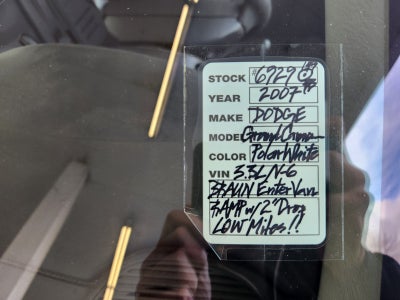 STOCK #6929
YEAR 2007
MAKE DODGE
MODEL Grand Caravan
COLOR Polar White
VIN 3.3L N-6
BRAUN EnterVan
RAMP w/ 2" Drop
LOW Miles!!